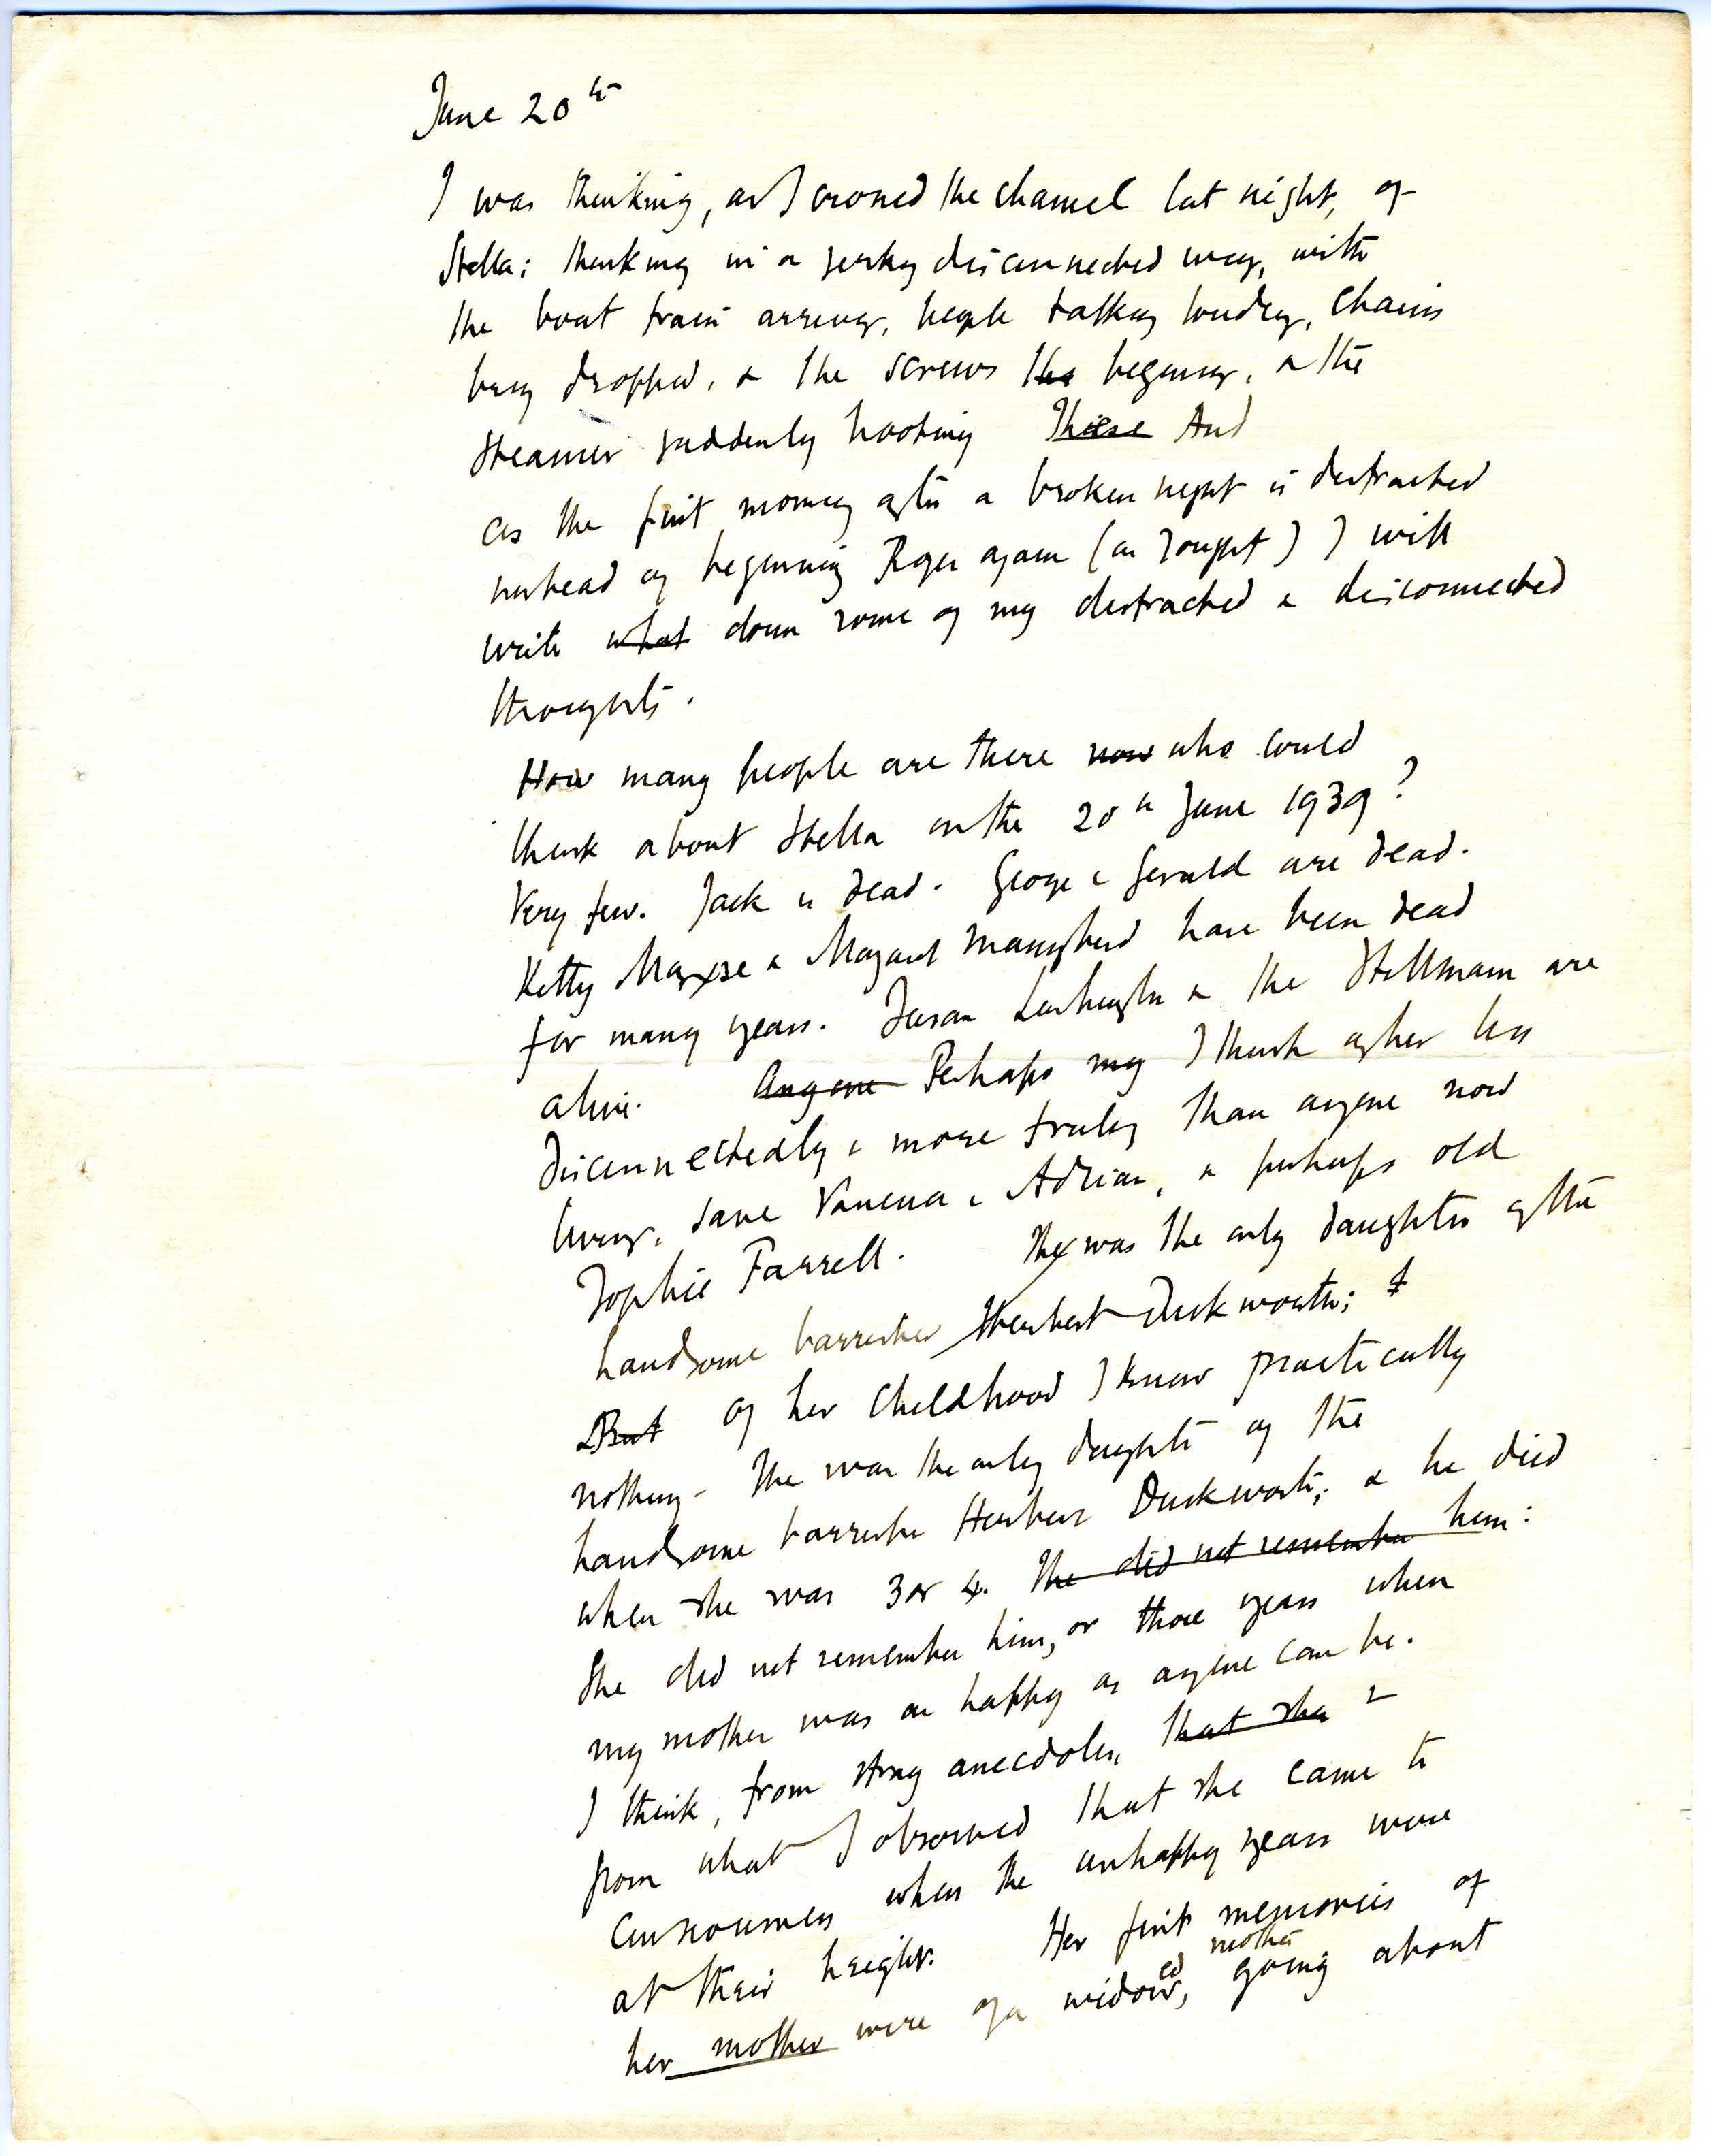 June 20th
I was thinking, as I crossed the channel last night, of
Stella; thinking in a jerky disconnected way, with
the boat train arriving, people talking loudly, chains
being dropped, & the screws the beginning, & the
steamer suddenly hooting These And
as the first morning after a broken night is distracted
instead of beginning Roger again (as I ought) I will
write what down some of my distracted & disconnected
thoughts.
How many people are there now who could
think about Stella on the 20th June 1939?
Very few. Jack is dead. George & Gerald are dead.
Kitty Maxse & Margaret Massingberd have been dead
for many years. Susan Lushington & the Stillmans are
alive. Anyone Perhaps my I think of her less
disconnectedly & more truly than anyone now
living, save Vanessa & Adrian, & perhaps old
Sophie Farrell. She was the only daughter of the
handsome barrister Herbert Duckworth;
But Of her childhood I know practically
nothing. She was the only daughter of the
handsome barrister Herbert Duckworth; & he died
when she was 3 or 4. She did not remember him:
She did not remember him, or those years when
my mother was as happy as anyone can be.
I think, from stray anecdotes, that she &
from what I observed that she came to
consciousness when the unhappy years were
at their height. Her first memories of
her mother were of a widowed mother, going about